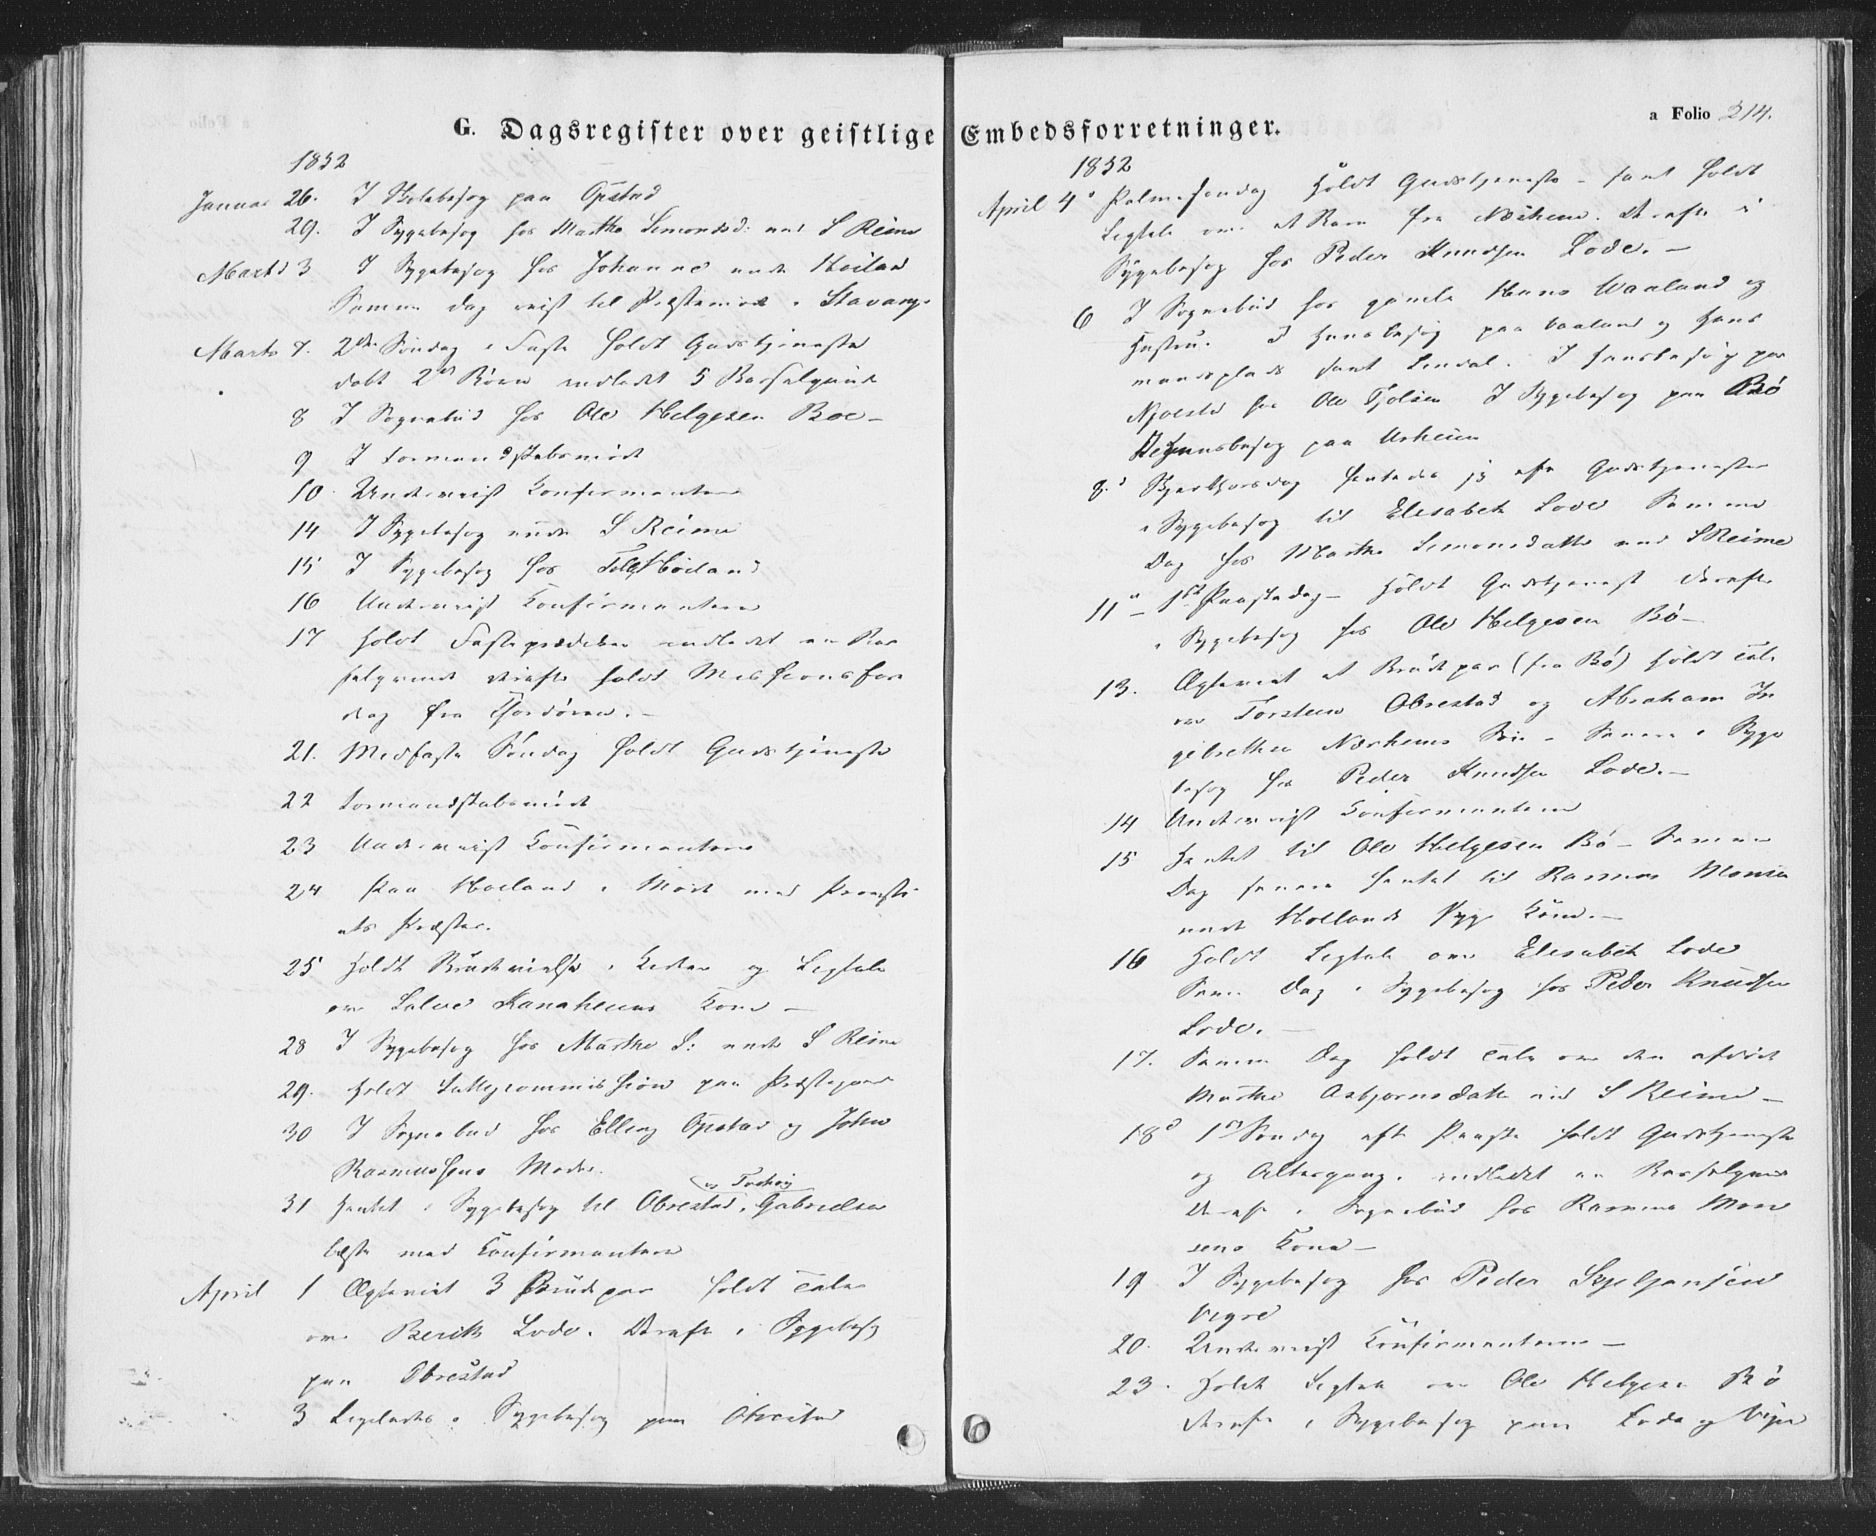 G. Dagsregister over geistlige Embedsforretninger.
a Folio 214.
1852
Januar 26. I Skolebesøg paa Opstad
29. I Sygebesøg hos Marthe Simonsd: ved S Reime
Marts 3 I Sygebesøg hos Johanne under Høiland
Samme Dag reist til Præstemøde i Stavang.
Marts 7. 2den Søndag i Faste holdt Gudstjeneste
døbt 2 Børn indledet 5 Barselqvind
8 I Sognebud hos Ole Helgesen Boe -
9 I Formandskabsmøde
10 Underviist Confirmanterne
14 I Sygebesøg under S Reime
15 I Sygebesøg hos Høiland
16 Underviist Confirmanterne
17 Holdt Fasteprædiken indledet en Bar
selqvind derefter holdt Missionsfore
drag fra Chordøren. -
21. Midfaste Søndag holdt Gudstjeneste
22 Formandskabsmøde
23 Underviist Confirmanterne
24 Paa Høiland i Møde med Provsti
ets Præster.
25 Holdt Brudevielse i Kirken og Ligtale
over Salve Kanaheims Kone -
28 I Sygebesøg hos Marthe S: under S Reime
29. Holdt commission paa Præstegaard
30 I Sognebud hos Elling Opstad og John
Rasmussens Moder.
31 Hentet i Sygebesøg til Obrestad, Gabrielsen
læste med Confirmanterne
April 1 Ægteviet 3 Brudepar holdt Tale
over Berit Lode. Derefter i Sygebesøg
paa Obrestad
3 Ligeledes i Sygebesøg paa Obrestad
1852
April 4 Palmesøndag Holdt Gudstjeneste - samt holdt
Ligtale over et Barn fra Nærheim. Derefter i
Sygebesøg hos Peder Knudsen Lode. -
6 I Sognebud hos gamle Hans Vaaland og
Hustru. I Huusbesøg paa Vaaland og Huus
mandsplads samt Lindal. I Huusbesøg paa
hos Ole I Sygebesøg paa Bø
Huusbesøg paa Urheim
8. Skjærthorsdag hentedes jeg efter Gudstjenesten
i Sygebesøg til Elisabeth Lode Samme
Dag hos Marthe Simonsdatter ved S Reime
11 1ste Paaskedag - Holdt Gudstjeneste derefter
i Sygebesøg hos Ole Helgesen Bø -
13. Ægteviet et Brudepar (fra Bø) holdt Tale
over Torsten Obrestad og Abraham In
gebretsen Nærheims Søn - Senere i Syge
besøg hos Peder Knudsen Lode. -
14 Underviist Confirmanterne
15 Hentet til Ole Helgesen Bø - Samme
Dag senere hentet til Rasmus Monsen
under Hollands syge Kone. -
16 Holdt Ligtale over Elisabeth Lode
Samme Dag i Sygebesøg hos Peder Knudsen
Lode. -
17. Samme Dag holdt Tale over den afdøde
Marthe Asbjornsdatter ved S Reime -
18 1ste Søndag efter Paaske holdt Gudstjeneste
og Altergang. indledet en Barselqvind
Derefter i Sognebud hos Rasmus Mon
sens Kone -
19 I Sygebesøg hos Peder
Vigre
20. Underviist Confirmanterne -
23. Holdt Ligtale over Ole Helgesen Bø
derefter i Sygebesøg paa Lode og Vigre